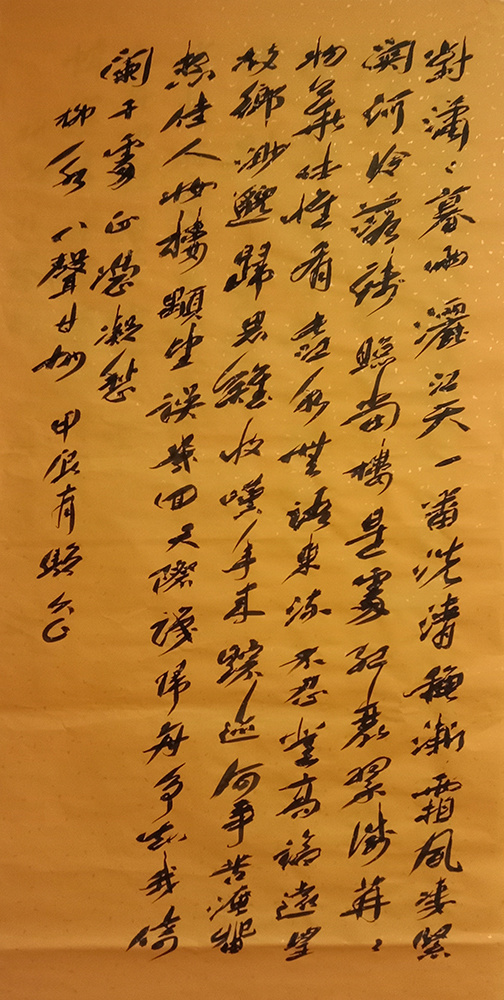 對瀟々暮雨灑江天一番洗清穐漸霜風凄緊
關河冷落殘照當樓是處紅衰翠減苒々
物華休惟有長江水無語東流不忍登高臨遠望
故鄉渺邈歸思難收嘆年來蹤跡何事苦淹留
想佳人妝樓顒望誤幾回天際識歸舟爭知我倚
闌干處正恁凝愁
柳永八聲甘州 甲辰有